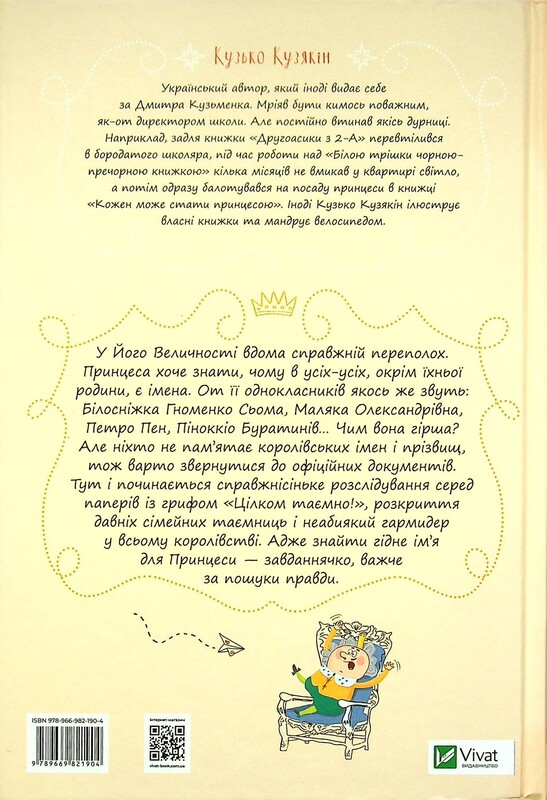 Кузько Кузякін
Український автор, який іноді видає себе
за Дмитра Кузьменка. Мріяв бути кимось поважним,
як-от директором школи. Але постійно втинав якісь дурниці.
Наприклад, задля книжки «Другоасики з 2-А» перевтілився
в бородатого школяра, під час роботи над «Білою трішки чорною-
пречорною книжкою» кілька місяців не вмикав у квартирі світло,
а потім одразу балотувався на посаду принцеси в книжці
«Кожен може стати принцесою». Іноді Кузько Кузякін ілюструє
власні книжки та мандрує велосипедом.
У Його Величності вдома справжній переполох.
Принцеса хоче знати, чому в усіх-усіх, окрім їхньої
родини, є імена. От її однокласників якось же звуть:
Білосніжка Гноменко Сьома, Маляка Олександрівна,
Петро Пен, Піноккіо Буратинів... Чим вона гірша?
Але ніхто не пам’ятає королівських імен і прізвищ,
тож варто звернутися до офіційних документів.
Тут і починається справжнісіньке розслідування серед
паперів із грифом «Цілком таємно!», розкриття
давніх сімейних таємниць і неабиякий гармидер
у всьому королівстві. Адже знайти гідне ім’я
для Принцеси — завданнячко, важче
за пошуки правди.
ISBN 978-966-982-190-4
9 789669 821904
інтернет-магазин
vivat-book.com.ua
Vivat
ВИДАВНИЦТВО